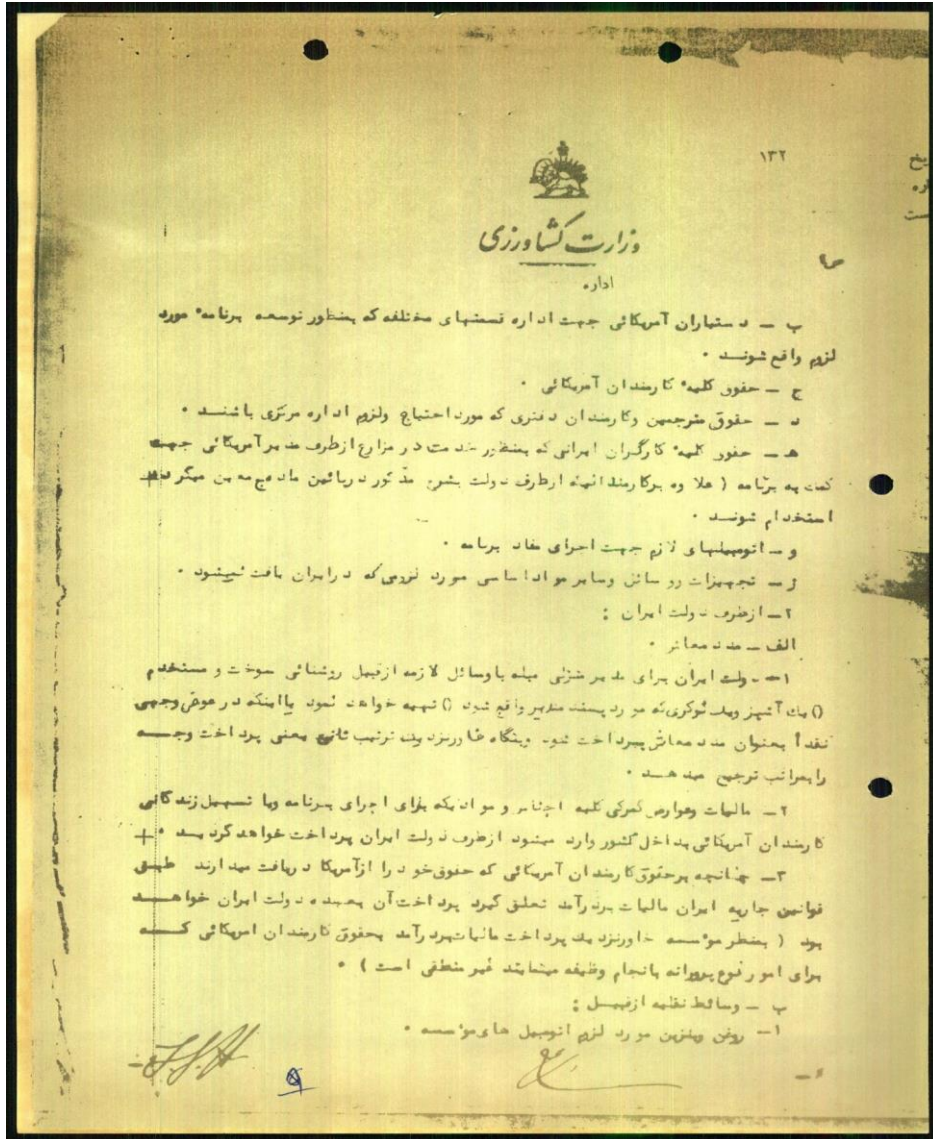 ۱۳۲
وزارت کشاورزی
اداره
ب – دستیاران آمریکائی جهت اداره قسمتهای مختلفه که بمنظور توسعه برنامه مورد
لزوم واقع شوند .
ج – حقوق کلیه کارمندان آمریکائی .
د – حقوق مترجمین وکارمندان دفتری که مورد احتیاج ولزوم اداره مرکزی باشند .
هـ – حقوق کلیه کارگران ایرانی که بمنظور خدمت در مزارع ازطرف مدیر آمریکائی جهت
کمک به برنامه ( علاوه برکارمندانیکه ازطرف دولت بشرح مذکور درپائین ماده
استخدام شوند .
و – اتومبیلهای لازم جهت اجرای مفاد برنامه .
ز – تجهیزات و وسائل وسایر مواد اساسی مورد لزومی که درایران یافت نمیشود .
۲– ازطرف دولت ایران :
الف – مدد معاش .
۱– دولت ایران برای مدیر منزلی مبله باوسائل لازمه ازقبیل روشنائی سوخت و مستخدم
() یک آشپز ویک نوکری که مورد پسند مدیر واقع شود () تهیه خواهد نمود یااینکه در عوض وجهی
نقداً بعنوان مدد معاش بپردازد خت شود . وبنگاه خاورنزدیک ترتیب ثانوی یعنی پرداخت وجه
رابمراتب ترجیح میدهد .
۲– مالیات وعوارض گمرکی کلیه اجناس و موادیکه برای اجرای برنامه ویا تسهیل زندگانی
کارمندان آمریکائی بداخل کشور وارد میشود ازطرف دولت ایران پرداخت خواهد گردید .
۳– چنانچه برحقوق کارمندان آمریکائی که حقوق خود را ازآمریکا دریافت میدارند طبق
قوانین جاریه ایران مالیات بردرآمد تعلق گیرد پرداخت آن بعهده دولت ایران خواهد
بود ( بنظر مؤسسه خاورنزدیک پرداخت مالیات بردرآمد بحقوق کارمندان امریکائی که
برای امور نوع پرورانه بانجام وظیفه مینمایند غیر منطقی است ) .
ب – وسائط نقلیه ازقبیل :
۱– روغن وبنزین مورد لزوم اتومبیل های مؤسسه .